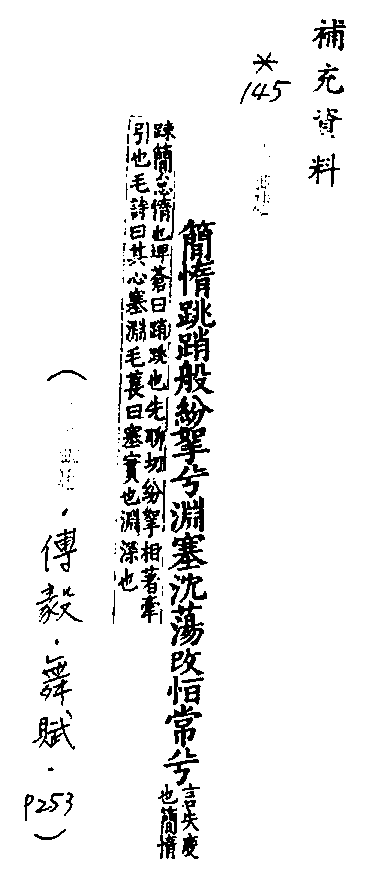 補充資料
*145
簡惰跳踃般紛挐兮淵塞沈蕩改恒常兮
言失度
也簡惰
踈簡怠惰也埤蒼曰踃跳也先聊切紛挐相著牽
引也毛詩曰其心塞淵毛萇曰塞實也淵深也
（
．傅毅．舞賦．P253）